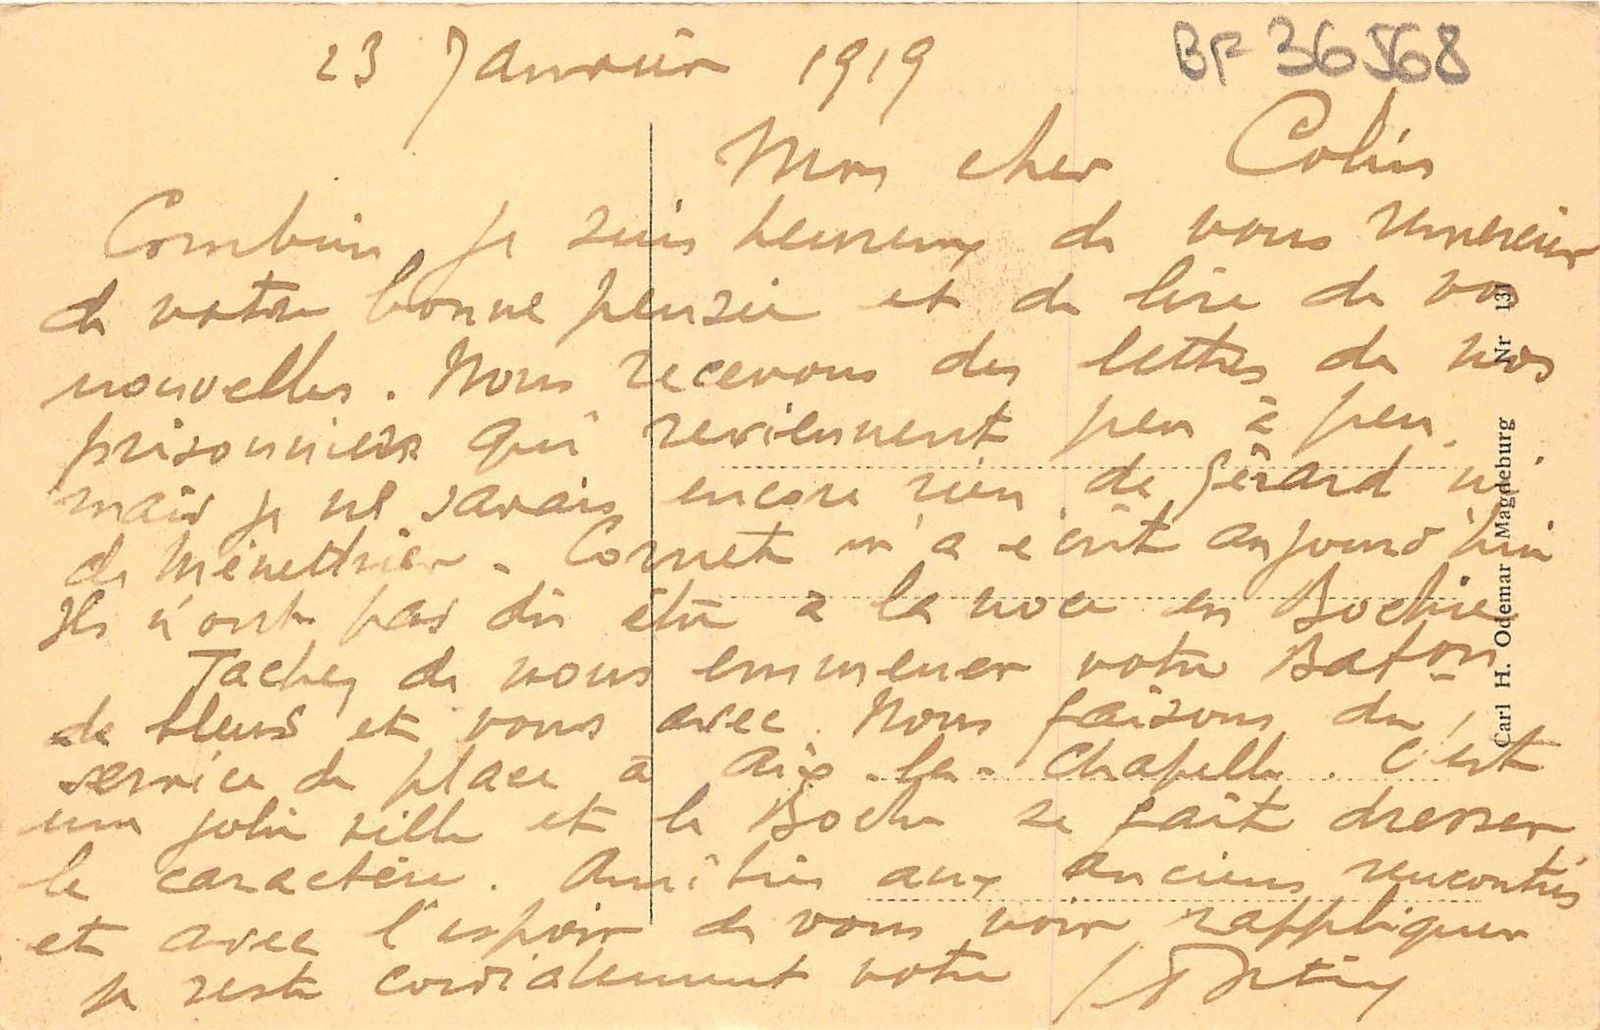 BF 36568
23 Janvier 1919
Mon cher Colin
Combien je suis heureux de vous remercier
de votre bonne pensée et de lire de vos
nouvelles. Nous recevons des lettres de nos
prisonniers qui reviennent peu à peu.
mais je ne savais encore rien de Gérard ni
de Ménettrier. Cornet m'a écrit aujourd'hui
Ils n'ont pas dû être à la noce en Bochie
Tachez de nous emmener votre Baton
de bleus et vous avec. Nous faisons du
service de place à Aix-la-Chapelle. C'est
une jolie ville et le Boche se fait dresser
le caractère. Amitiés aux anciens rencontrés
et avec l'espoir de vous voir rappliquer
je reste cordialement votre
Carl H. Odemar Magdeburg Nr 131